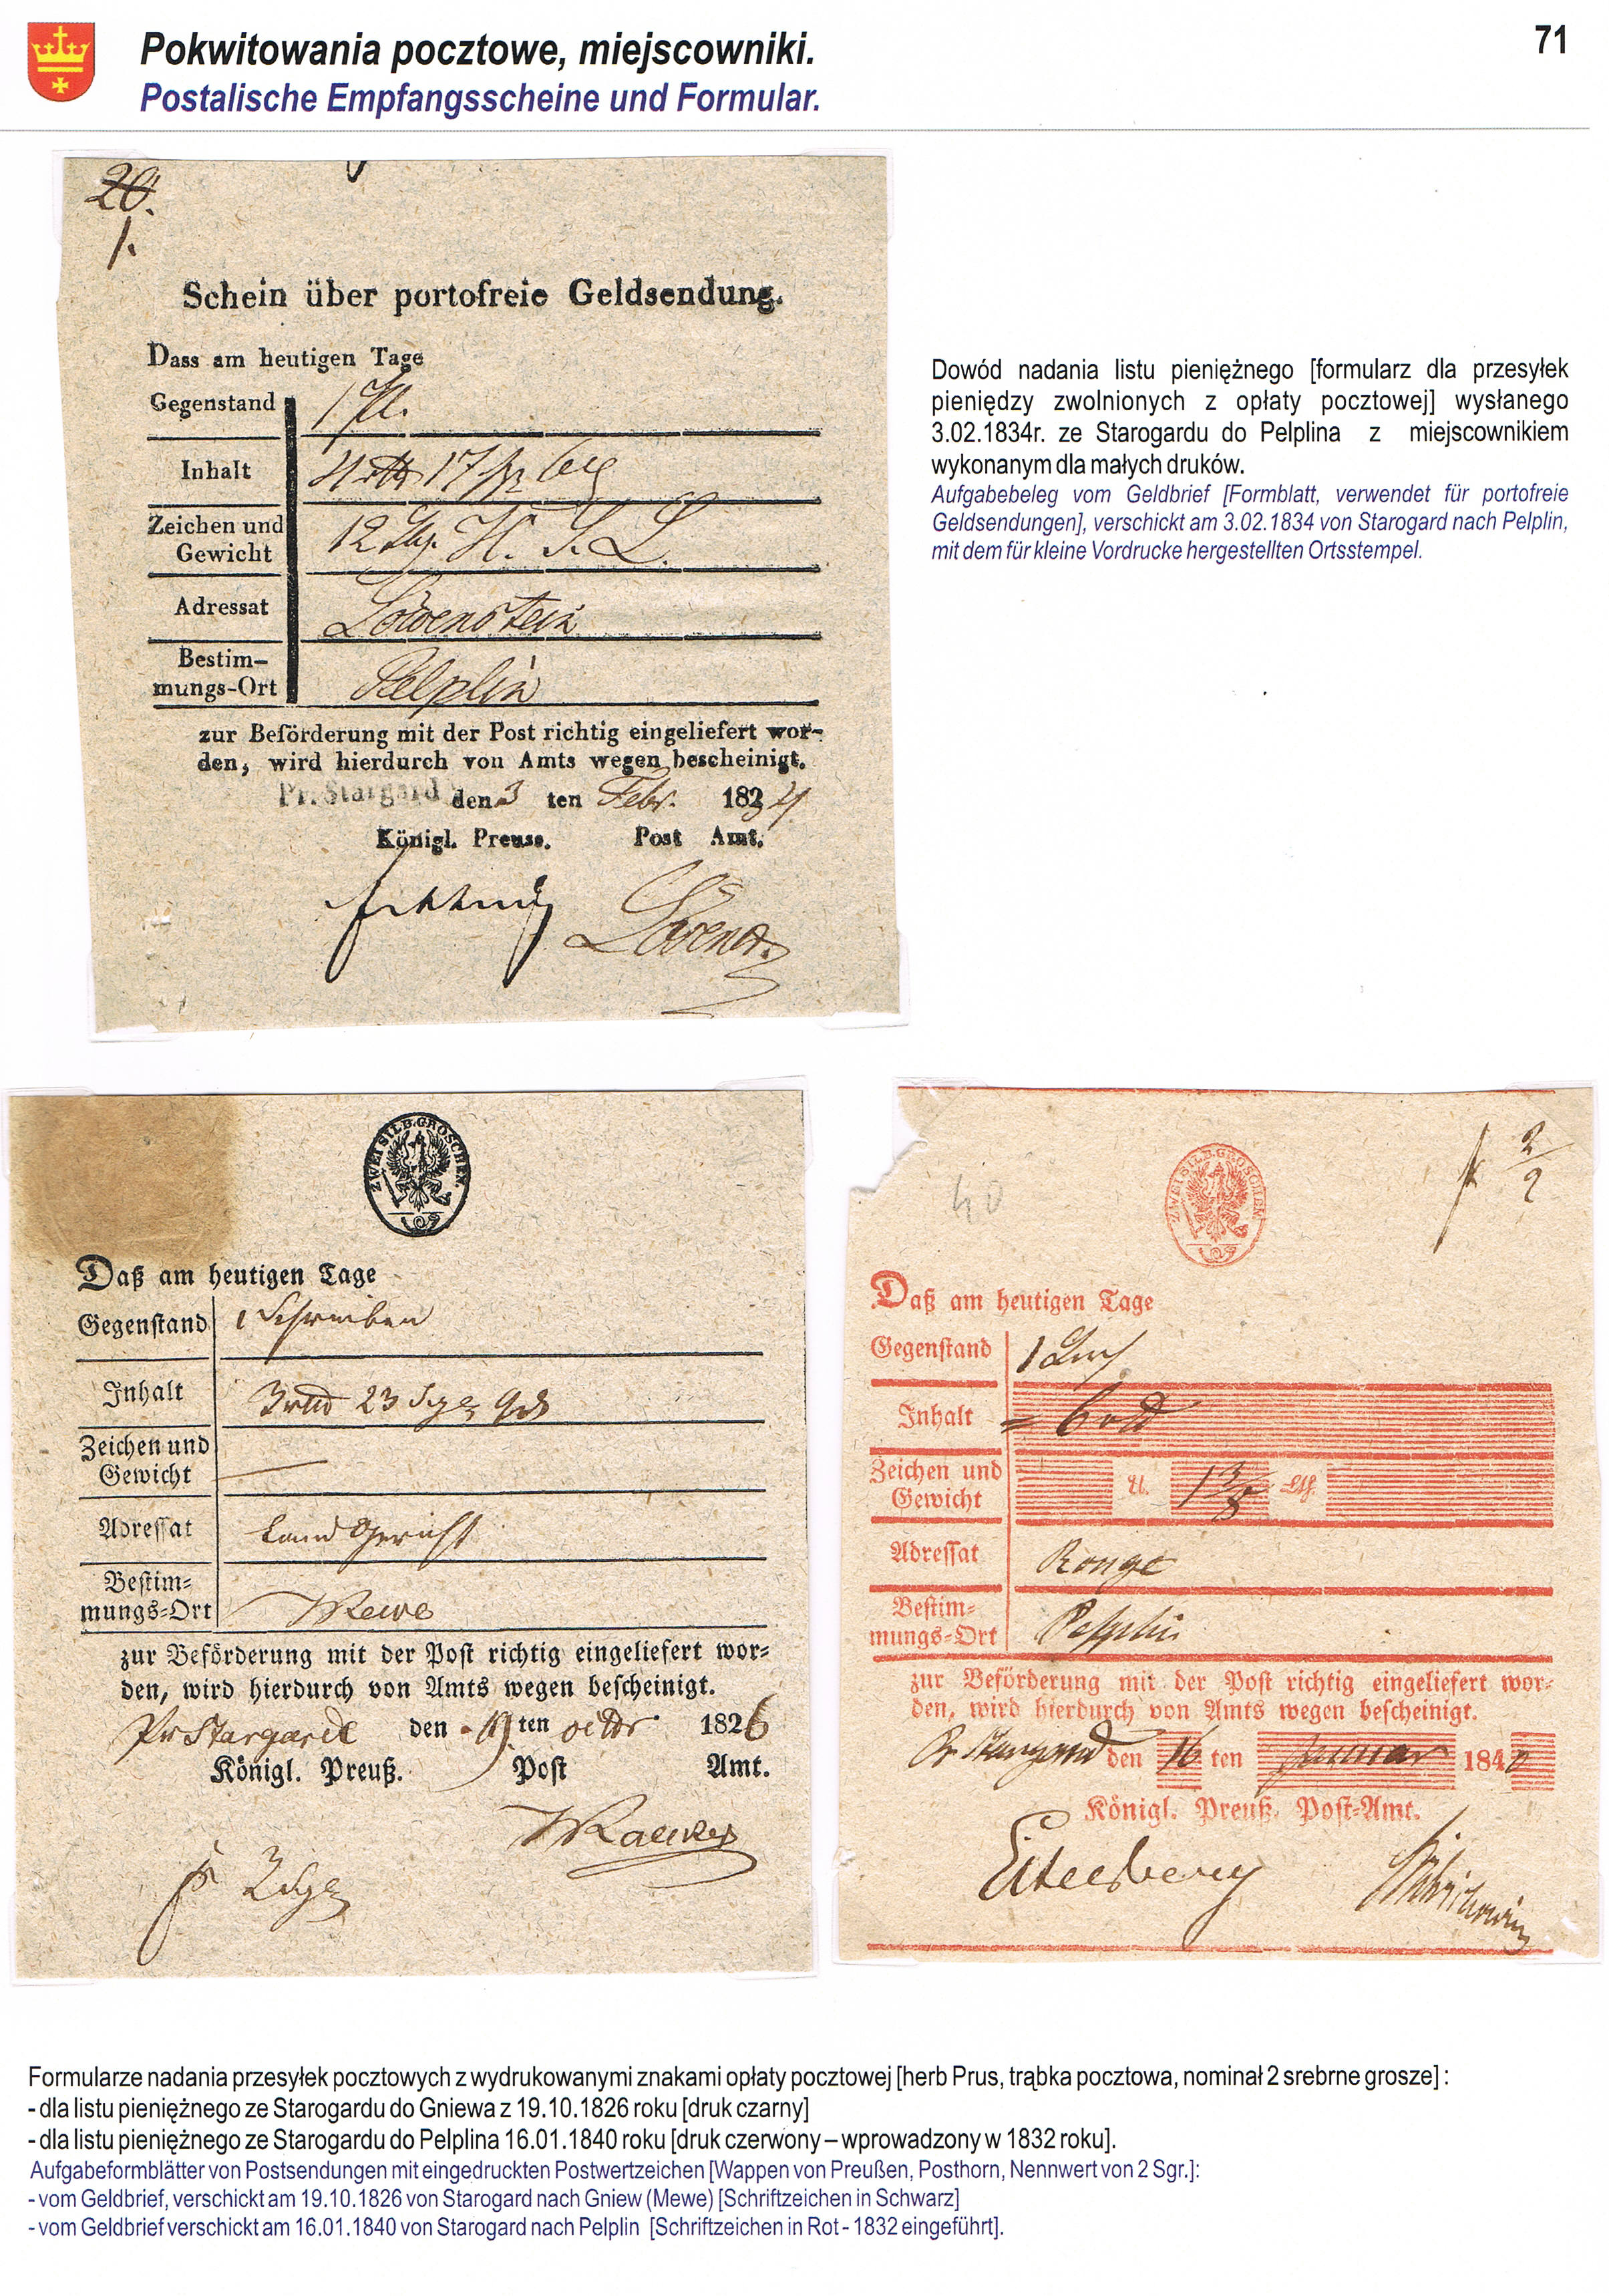 Pokwitowania pocztowe, miejscowniki.
71
Postalische Empfangsscheine und Formular.
20.
1.
Schein über portofreie Geldsendung.
Dass am heutigen Tage
Gegenstand
Inhalt
Zeichen und
Gewicht
Adressat Löwenstein
Bestim-
mungs-Ort Pelplin
zur Beförderung mit der Post richtig eingeliefert wor-
den, wird hierdurch von Amts wegen bescheinigt.
Pr. Stargard den 3 ten Febr. 1834
Königl. Preuss. Post Amt.
Dowód nadania listu pieniężnego [formularz dla przesyłek
pieniędzy zwolnionych z opłaty pocztowej] wysłanego
3.02.1834r. ze Starogardu do Pelplina z miejscownikiem
wykonanym dla małych druków.
Aufgabebeleg vom Geldbrief [Formblatt, verwendet für portofreie
Geldsendungen], verschickt am 3.02.1834 von Starogard nach Pelplin,
mit dem für kleine Vordrucke hergestellten Ortsstempel.
ZWEI SILB. GROSCHEN.
Daß am heutigen Tage
Gegenstand 1 Schreiben
Inhalt
Zeichen und
Gewicht
Adressat Land Gericht
Bestim-
mungs-Ort Mewe
zur Beförderung mit der Post richtig eingeliefert wor-
den, wird hierdurch von Amts wegen bescheinigt.
Pr Stargardt den 19 ten octbr 1826
Königl. Preuß. Post Amt.
ZWEI SILB. GROSCHEN.
40
2/2
Daß am heutigen Tage
Gegenstand
Inhalt
Zeichen und
Gewicht 1 3/8 Lth.
Adressat Ronge
Bestim-
mungs-Ort Pelplin
zur Beförderung mit der Post richtig eingeliefert wor-
den, wird hierdurch von Amts wegen bescheinigt.
Pr Stargard den 16 ten Januar 1840
Königl. Preuß. Post-Amt.
Formularze nadania przesyłek pocztowych z wydrukowanymi znakami opłaty pocztowej [herb Prus, trąbka pocztowa, nominał 2 srebrne grosze] :
- dla listu pieniężnego ze Starogardu do Gniewa z 19.10.1826 roku [druk czarny]
- dla listu pieniężnego ze Starogardu do Pelplina 16.01.1840 roku [druk czerwony – wprowadzony w 1832 roku].
Aufgabeformblätter von Postsendungen mit eingedruckten Postwertzeichen [Wappen von Preußen, Posthorn, Nennwert von 2 Sgr.]:
- vom Geldbrief, verschickt am 19.10.1826 von Starogard nach Gniew (Mewe) [Schriftzeichen in Schwarz]
- vom Geldbrief verschickt am 16.01.1840 von Starogard nach Pelplin [Schriftzeichen in Rot - 1832 eingeführt].